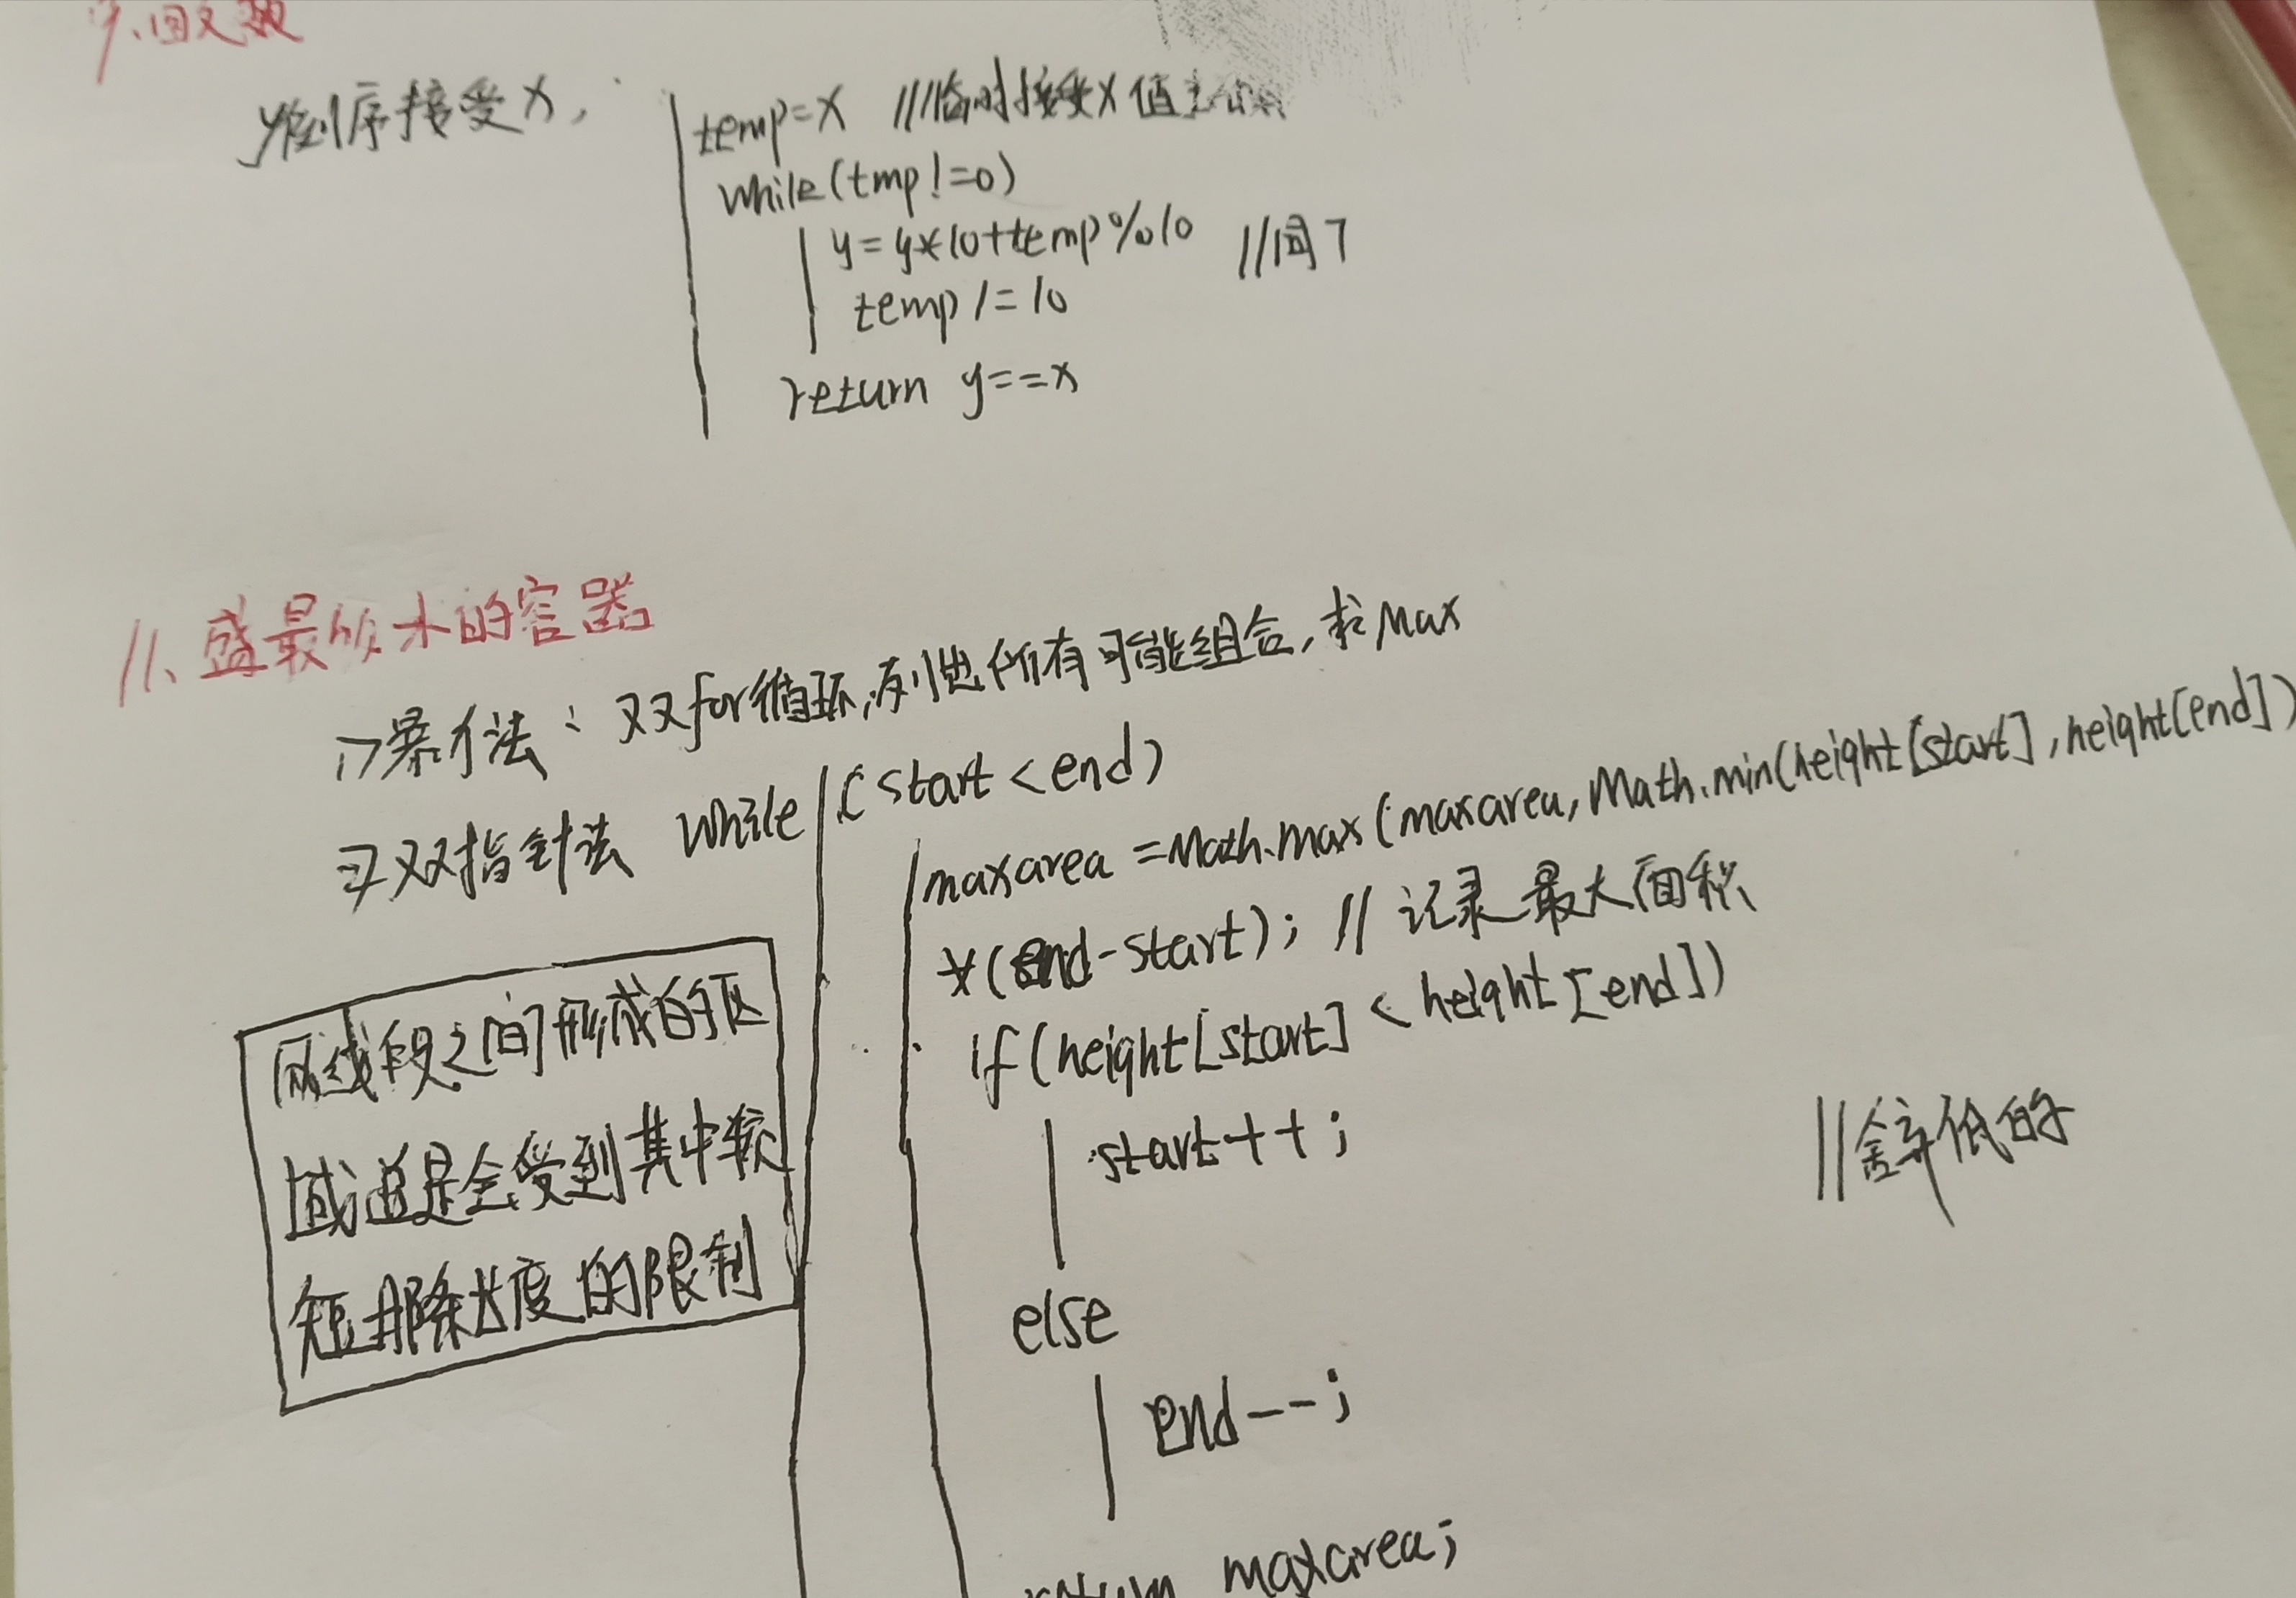 9、回文数
y倒序接受x,
temp=x //临时接受x值
while(tmp!=0)
y=y*10+temp%10 //同7
temp/=10
return y==x
11、盛最多水的容器
1>暴力法：双for循环,列出所有可能组合,求Max
2>双指针法 while(start<end)
maxarea=Math.max(maxarea,Math.min(height[start],height[end])
*(end-start); //记录最大面积
if(height[start]<height[end])
start++;
//舍弃低的
else
end--;
return maxarea;
两线段之间形成的区
域总是会受到其中较
短那条长度的限制